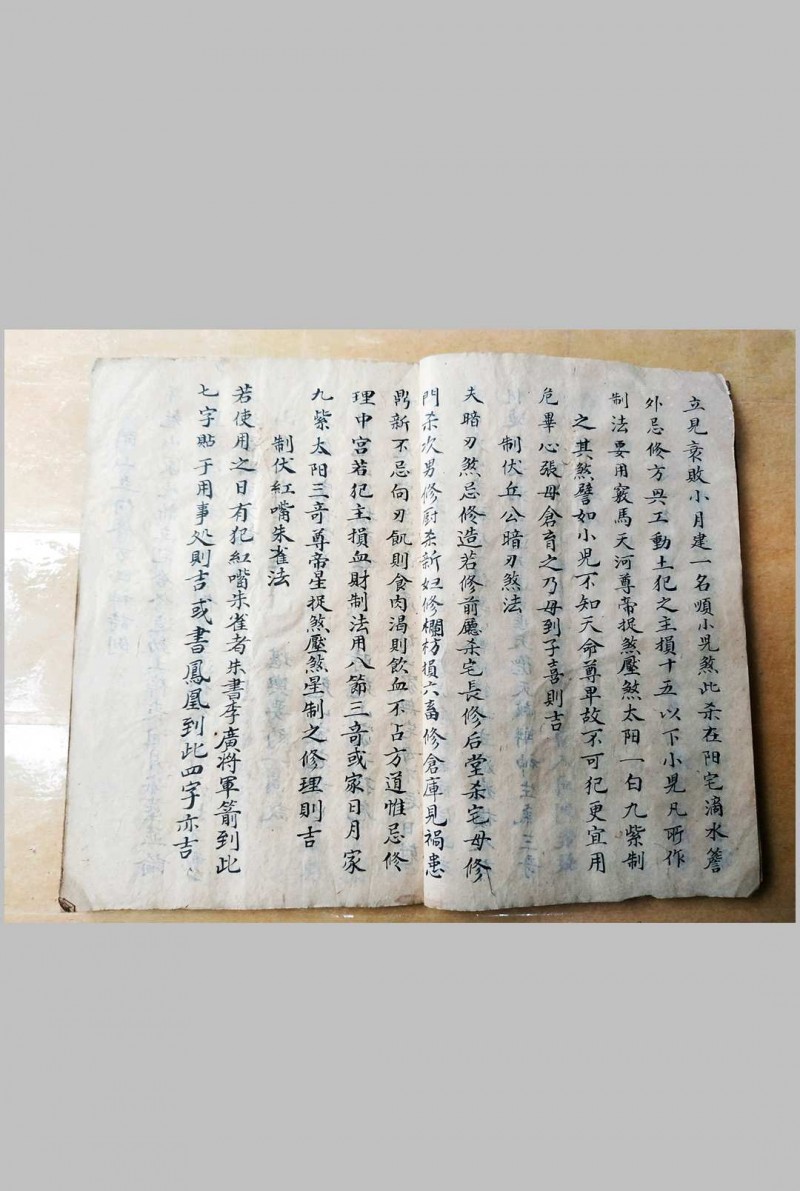 立見衰敗小月建一名順小兒煞此杀在阳宅滴水簷
外忌修方興工動土犯之主損十五以下小兒凡所作
制法要用竅馬天河尊帝捉煞壓煞太阳一白九紫制
之其煞譬如小児不知天命尊畢故不可犯更宜用
危畢心張母倉育之乃母到子喜則吉
制伏丘公暗刃煞法
夫暗刃煞忌修造若修前廳杀宅長修后堂杀宅母修
門杀次男修厨杀新妇修欄枋損六畜修倉庫見禍患
鼎新不忌向刃飢則食肉渴則飲血不占方道惟忌修
理中宮若犯主損血財制法用八節三奇或家日月家
九紫太阳三奇尊帝星捉煞壓煞星制之修理則吉
制伏紅嘴朱雀法
若使用之日有犯紅嘴朱雀者朱書李廣將軍箭到此
七字貼于用事処則吉或書鳳凰到此四字亦吉